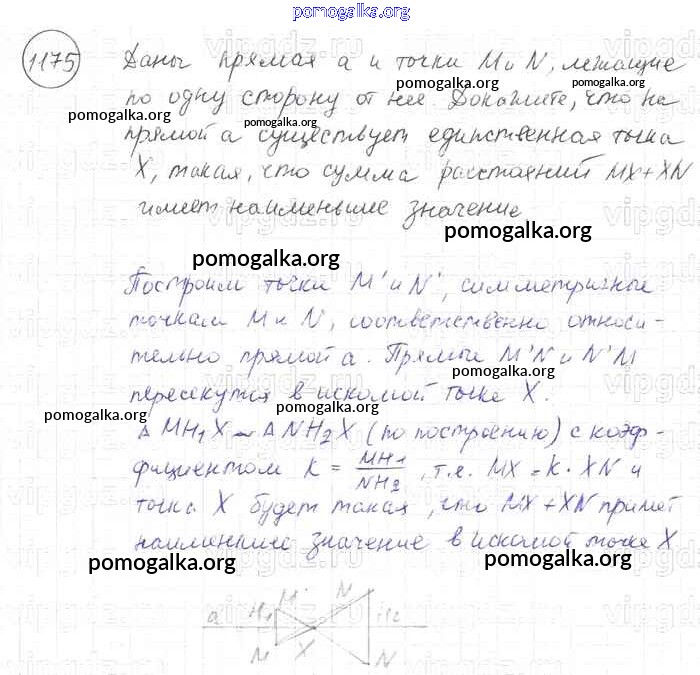 pomogalka.org
1175 Даны прямая a и точки M и N, лежащие
pomogalka.org
pomogalka.org
по одну сторону от нее. Докажите, что на
pomogalka.org
pomogalka.org
прямой a существует единственная точка
X, такая, что сумма расстояний MX+XN
имеет наименьшее значение
pomogalka.org
pomogalka.org
Построим точки M' и N', симметричные
точкам M и N, соответственно относи-
pomogalka.org
тельно прямой a. Прямые M'N и N'M
pomogalka.org
пересекутся в искомой точке X.
pomogalka.org
pomogalka.org
Δ MH₁X ~ Δ NH₂X (по построению) с коэф-
фициентом K = MH₁/NH₂, т.е. MX = K · XN и
точка X будет такая, что MX+XN примет
наименьшее значение в искомой точке X
pomogalka.org
pomogalka.org
a H₁ M' N' H₂
M X N